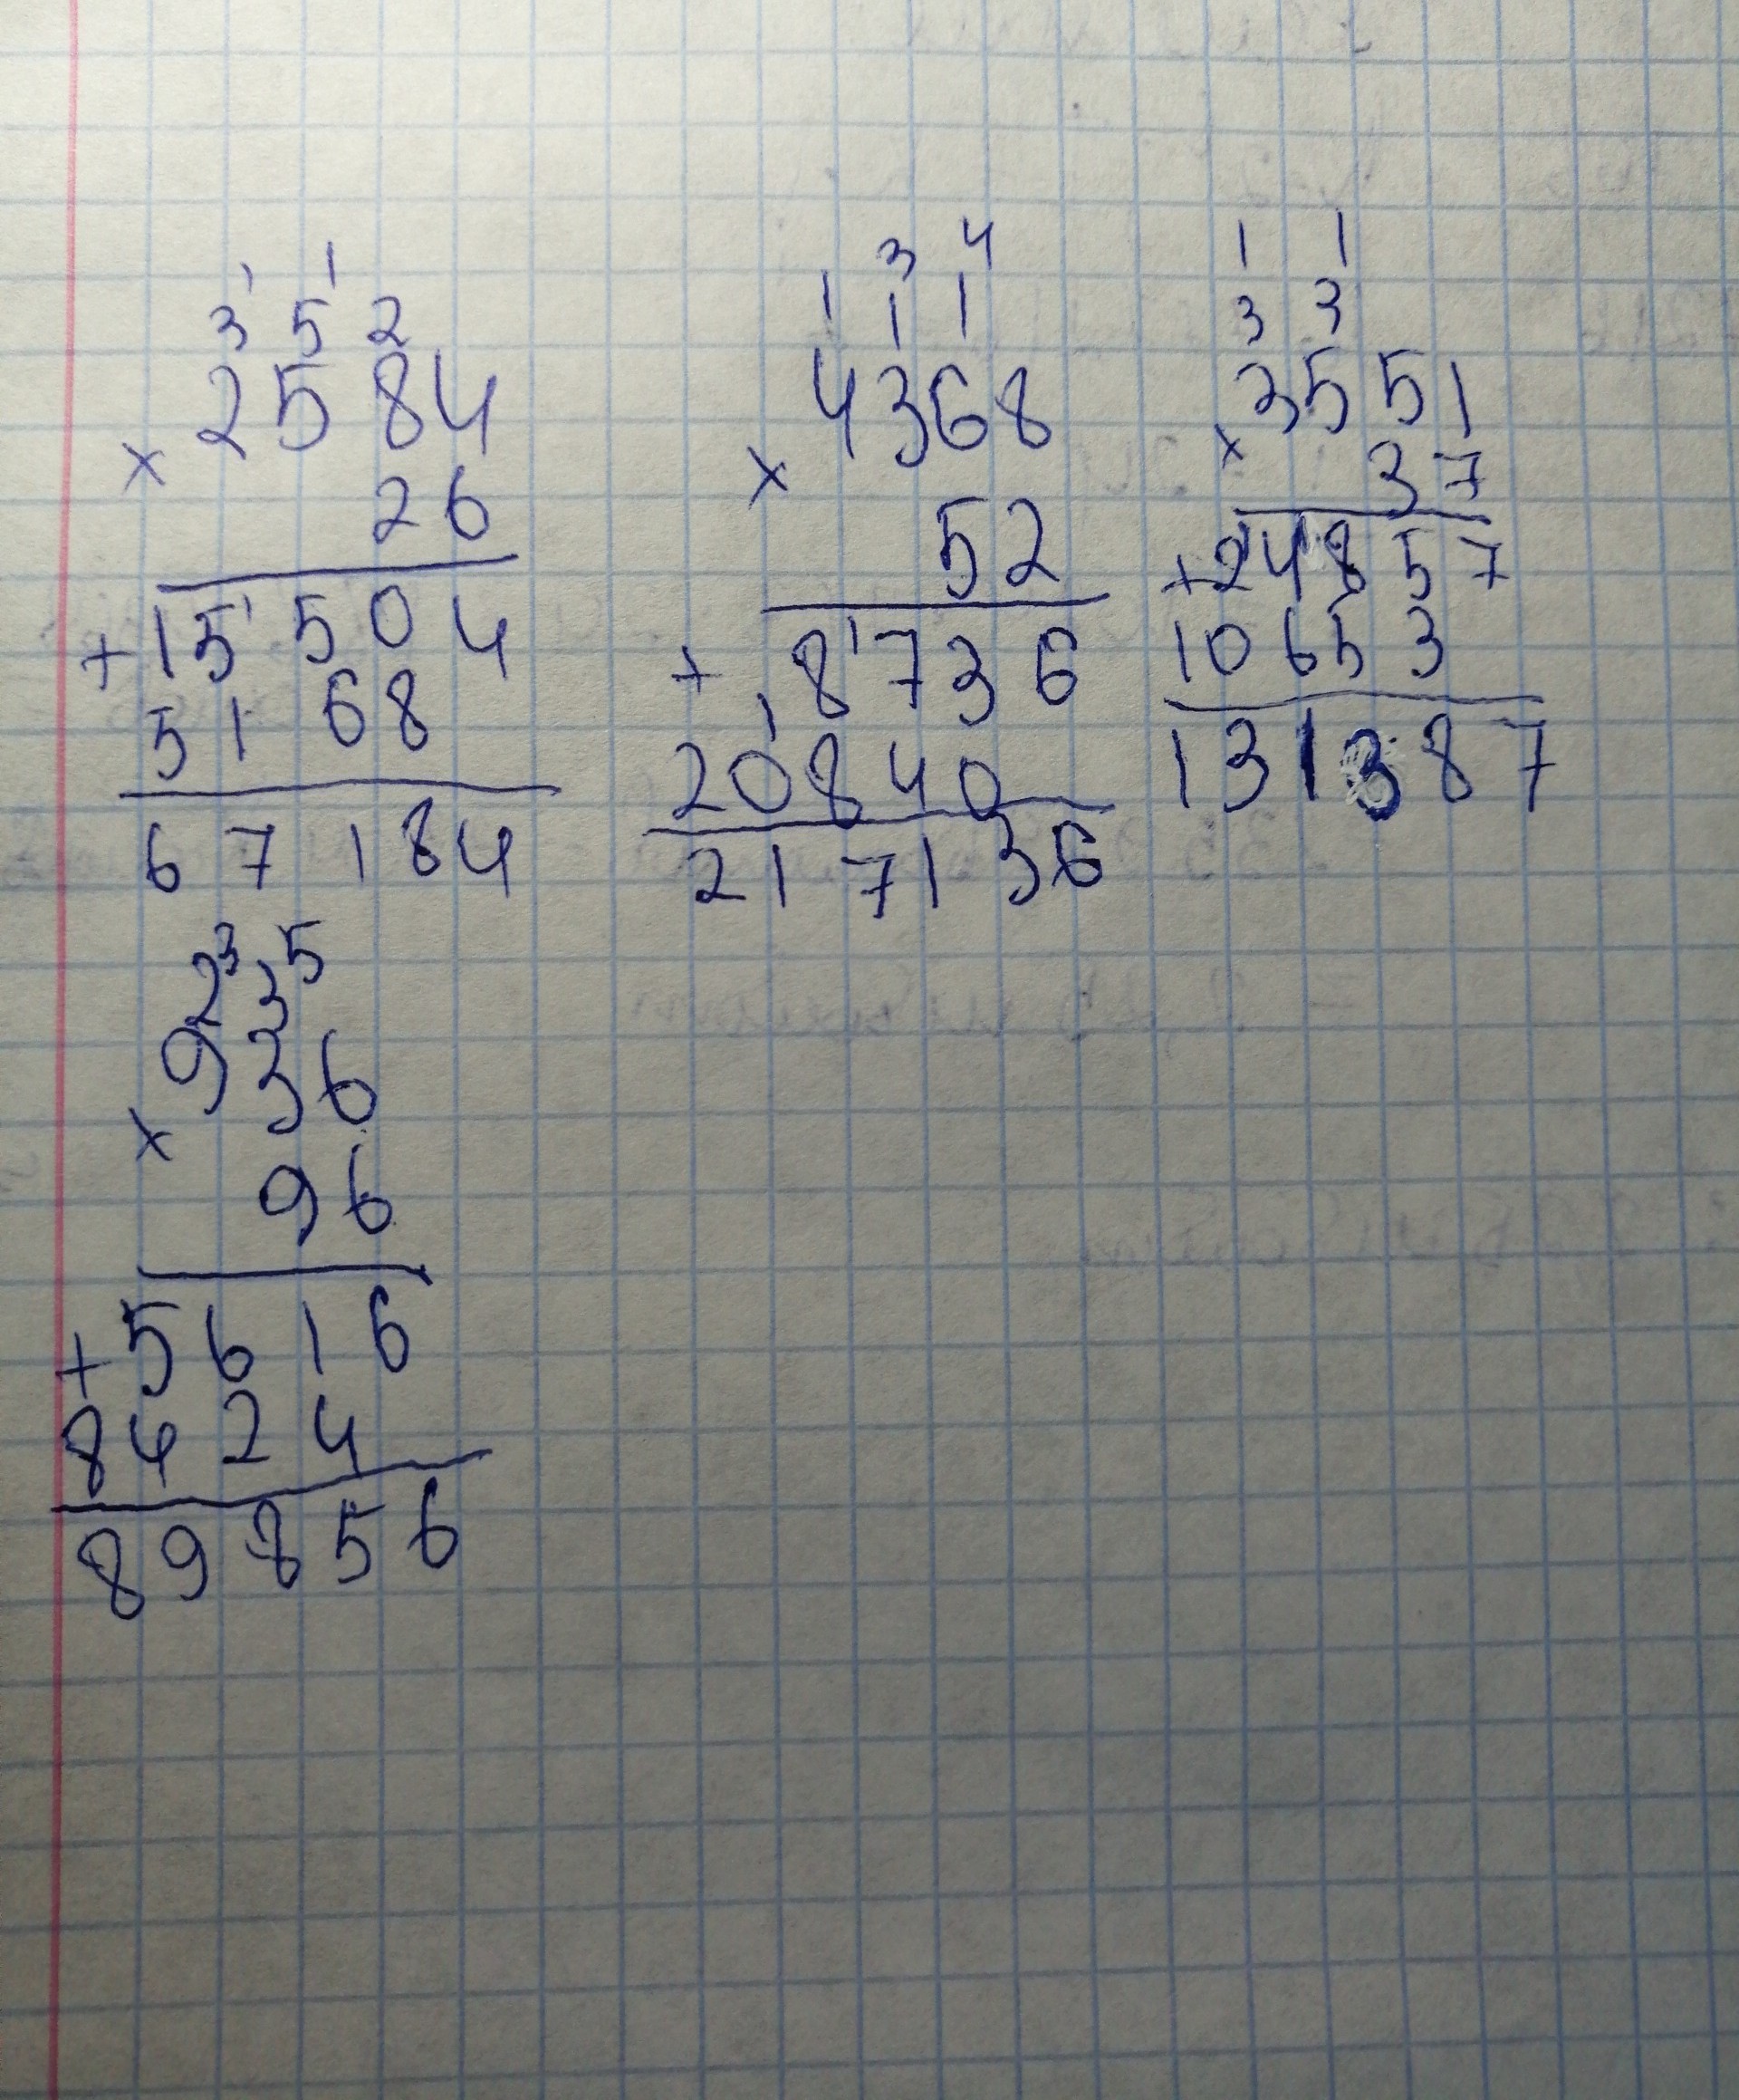 1 1
3 5 2
2584
× 26
+15¹504
5168
67184
3 4
1 1 1
4368
× 52
+ 8¹736
1
20840
217136
1 1
3 3
3551
× 37
+24857
10653
131387
3 5
2 3
936
× 96
+5616
8424
89856